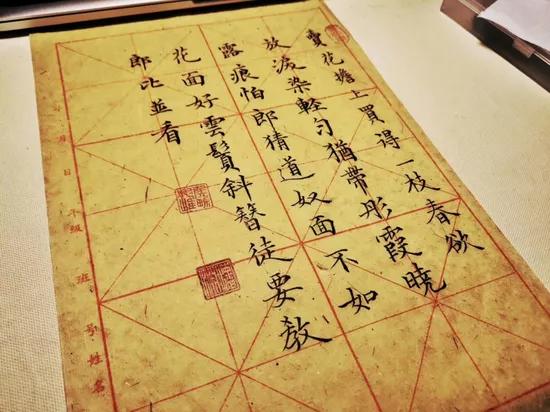 賣花擔上買得一枝春欲
放淚染輕匀猶帶彤霞曉
露痕怕郎猜道奴面不如
花面好雲鬢斜簪徒要教
郎比並看
月 日 年級 班 号 姓名